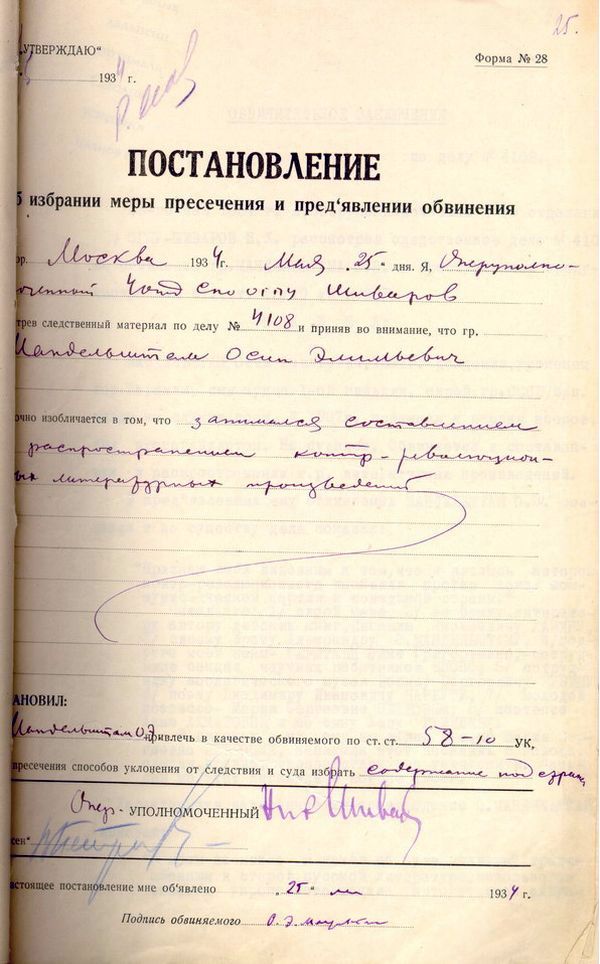 25.
„УТВЕРЖДАЮ“
Форма № 28
1934 г.
ПОСТАНОВЛЕНИЕ
б избрании меры пресечения и пред‘явлении обвинения
ор. Москва 1934 г. Мая „25“ дня. Я, Оперуполно-
моченный 4 отд СПО ОГПУ Шиваров
трев следственный материал по делу № 4108 и приняв во внимание, что гр.
Мандельштам Осип Эмильевич
очно изобличается в том, что занимался составлением
распространением контр-революцион-
ых литературных произведений
АНОВИЛ:
Мандельштам О.Э. привлечь в качестве обвиняемого по ст. ст. 58-10 УК,
пресечения способов уклонения от следствия и суда избрать содержание под стражей
Опер- УПОЛНОМОЧЕННЫЙ Ник Шивар
сен“
астоящее постановление мне об‘явлено „25“ 1934 г.
Подпись обвиняемого О. Э. Мандельштам